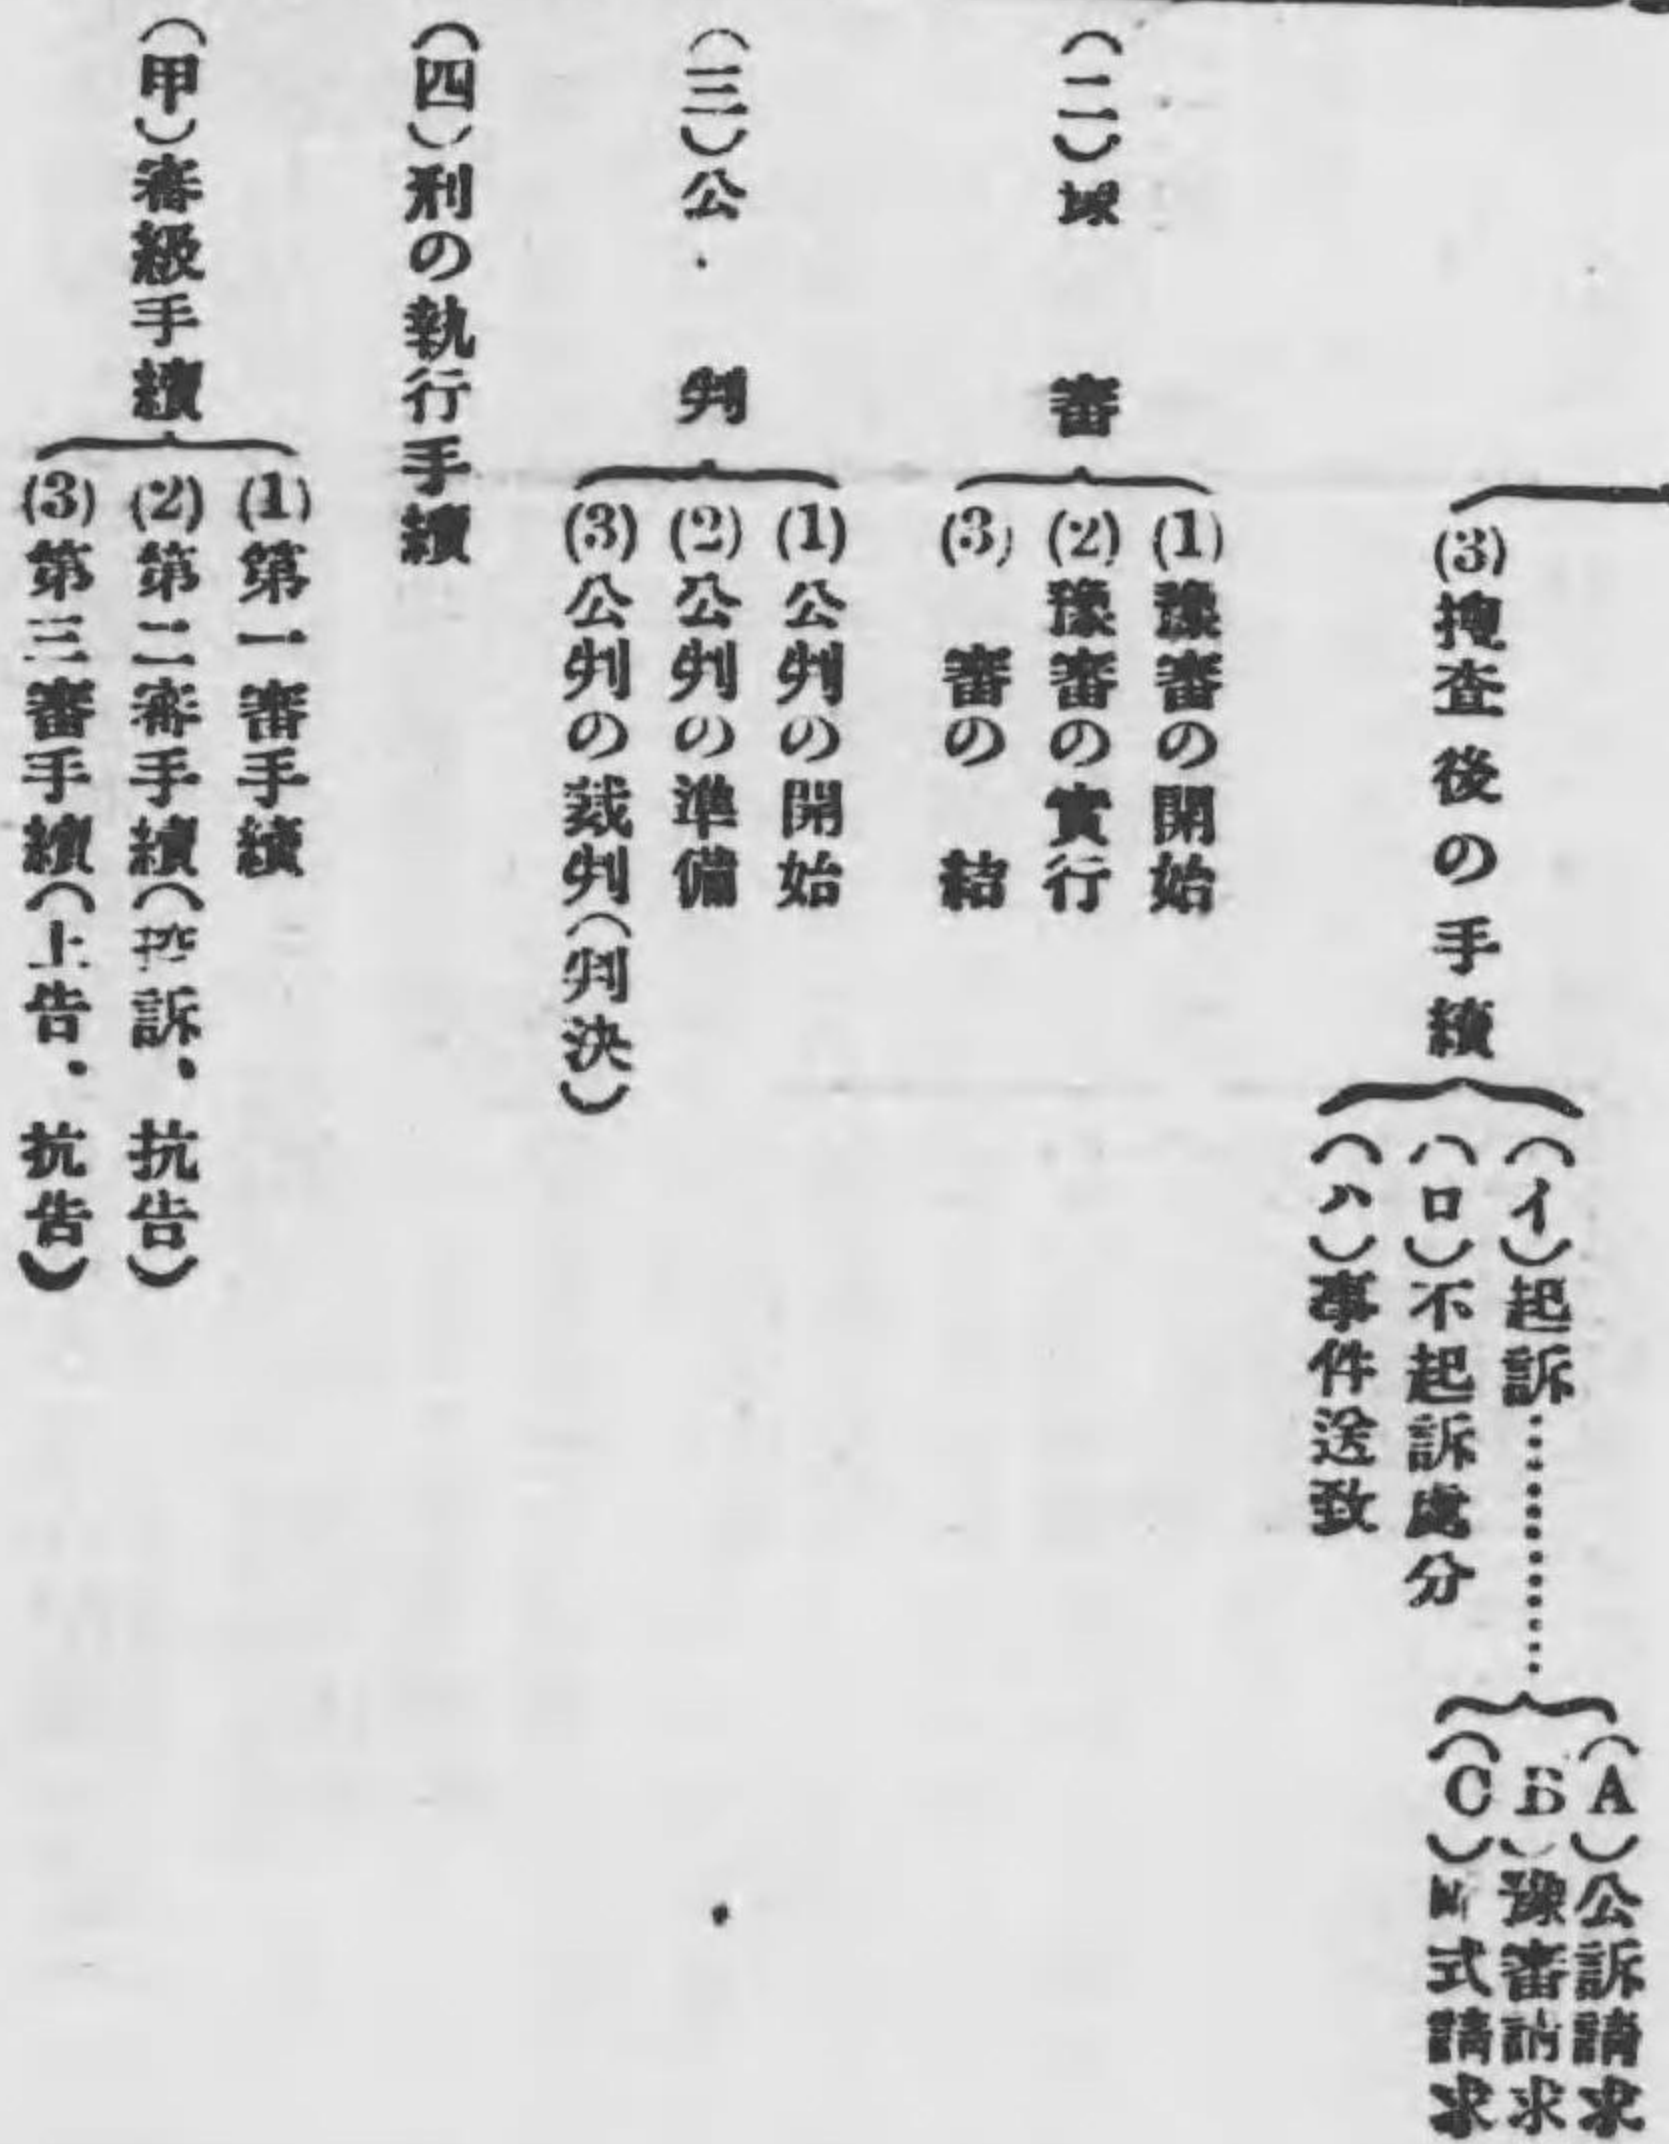 (3)搜査後の手續
(イ)起訴…………
(A)公訴請求
(B)豫審請求
(C)式請求
(ロ)不起訴處分
(ハ)事件送致
(二)豫審
(1)豫審の開始
(2)豫審の實行
(3)審の結
(三)公判
(1)公判の開始
(2)公判の準備
(3)公判の裁判(判決)
(四)刑の執行手續
(甲)審級手續
(1)第一審手續
(2)第二審手續(控訴、抗告)
(3)第三審手續(上告、抗告)